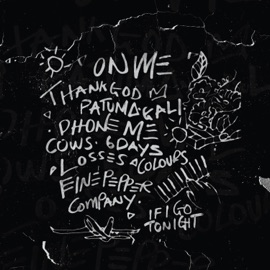 ON ME
THANK GOD
PATUMA GALI
PHONE ME
COWS. 6 DAYS
LOSSES COLOURS
FINE PEPPER
COMPANY.
IF I GO
TONIGHT